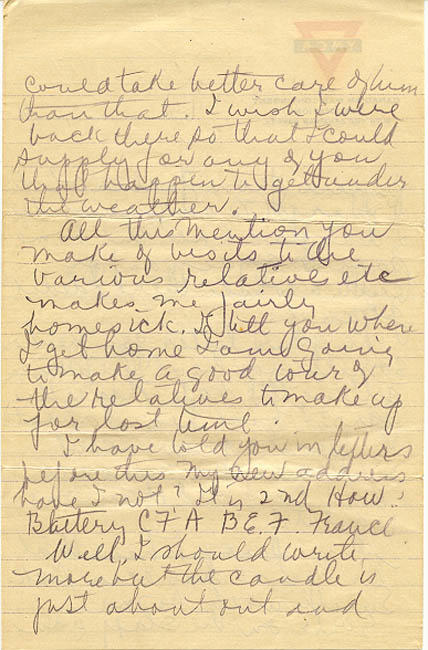 could take better care of him
than that. I wish I were
back there so that I could
supply for any of you
that happen to get under
the weather.
All this mention you
make of visits to the
various relatives etc
makes me fairly
homesick. I tell you when
I get home I am going
to make a good tour of
the relatives to make up
for lost time.
I have told you in letters
before this my new address
have I not? It is 2nd How.
Battery C.F.A. B.E.F. France
Well, I should write
more but the candle is
just about out and